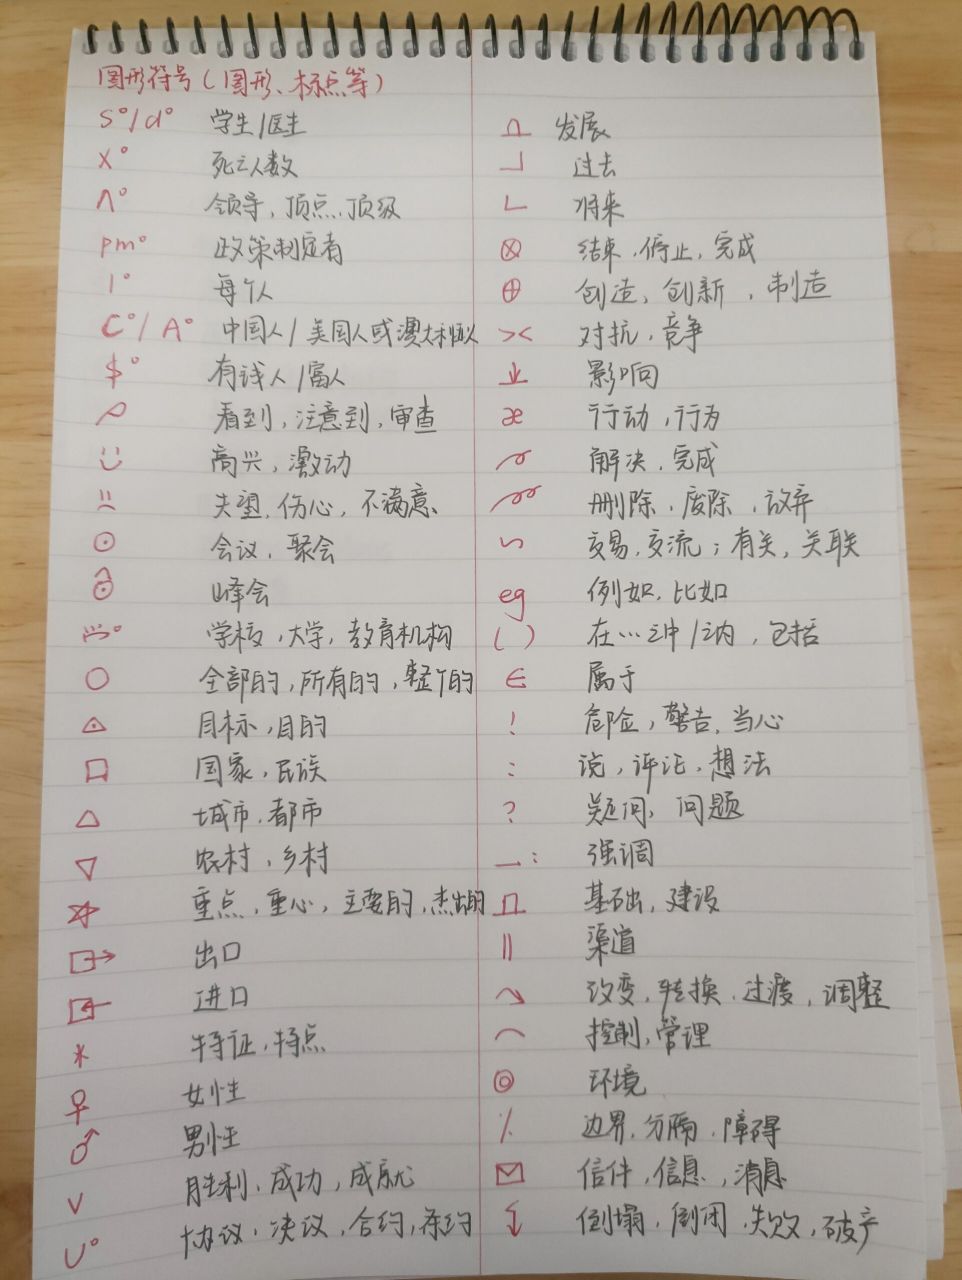 图形符号(图形、标点等)
S°/d° 学生/医生
x° 死亡人数
∧° 领导,顶点,顶级
pm° 政策制定者
1° 每个人
C°/A° 中国人/美国人或澳大利亚人
$° 有钱人/富人
看到,注意到,审查
高兴,激动
失望,伤心,不满意
⊙ 会议,聚会
峰会
学校,大学,教育机构
○ 全部的,所有的,整个的
目标,目的
□ 国家,民族
△ 城市,都市
▽ 农村,乡村
☆ 重点,重心,主要的,杰出的
出口
进口
* 特征,特点
♀ 女性
♂ 男性
∨ 胜利,成功,成就
∪° 协议,决议,合约,条约
发展
┘ 过去
└ 将来
⊗ 结束,停止,完成
⊕ 创造,创新,制造
>< 对抗,竞争
影响
æ 行动,行为
解决,完成
删除,废除,放弃
∽ 交易,交流;有关,关联
eg 例如,比如
( ) 在…之中/之内,包括
∈ 属于
! 危险,警告,当心
: 说,评论,想法
? 疑问,问题
—: 强调
基础,建设
|| 渠道
改变,转换,过渡,调整
⌒ 控制,管理
◎ 环境
边界,分隔,障碍
✉ 信件,信息,消息
倒塌,倒闭,失败,破产